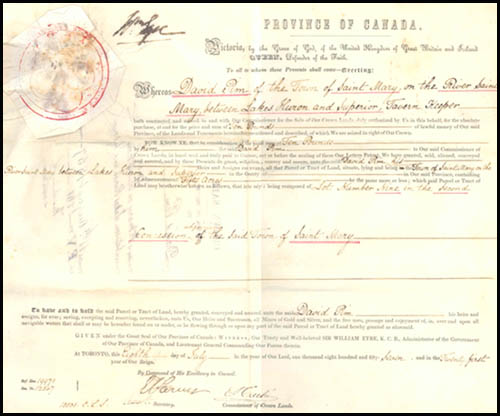 PROVINCE OF CANADA.
Victoria, by the Grace of God, of the United Kingdom of Great Britain and Ireland
QUEEN, Defender of the Faith.
To all to whom these Presents shall come—Greeting:
Whereas David Pim of the Town of Saint Mary, on the River Saint
Mary, between Lakes Huron and Superior, Tavern Keeper
hath contracted and agreed to and with Our Commissioner for the Sale of Our Crown Lands, duly authorized by Us in this behalf, for the absolute
purchase, at and for the price and sum of Ten Pounds of lawful money of Our said
Province, of the Lands and Tenements hereinafter mentioned and described, of which We are seized in right of Our Crown.
NOW KNOW YE, that in consideration of the said sum of Ten Pounds
by him the said David Pim to Our said Commissioner of
Crown Lands in hand well and truly paid to Our use, at or before the sealing of these Our Letters Patent, We have granted, sold, aliened, conveyed
and assured, and by these Presents do grant, sell, alien, convey and assure, unto the said David Pim, his
heirs and assigns for ever, all that Parcel or Tract of Land, situate, lying and being in the Town of Saint Mary on the
River Saint Mary between Lakes Huron and Superior in the County of in Our said Province, containing
by admeasurement Acres be the same more or less, which said Parcel or Tract of
Land may be otherwise known as follows, that is to say: being composed of Lot Number Nine in the Second
Concession of the said Town of Saint Mary
To have and to hold the said Parcel or Tract of Land, hereby granted, conveyed and assured unto the said David Pim his heirs and
assigns, for ever; saving, excepting and reserving, nevertheless, unto Us, Our Heirs and Successors, all Mines of Gold and Silver, and the free uses, passage and enjoyment of, in, over and upon all
navigable waters that shall or may be hereafter found on or under, or be flowing through or upon any part of the said Parcel or Tract of Land hereby granted as aforesaid.
GIVEN under the Great Seal of Our Province of Canada: WITNESS, Our Trusty and Well-beloved SIR WILLIAM EYRE, K. C. B., Administrator of the Government
of Our Province of Canada, and Lieutenant General Commanding Our Forces therein.
At TORONTO, this Eighth day of July in the year of Our Lord, one thousand eight hundred and fifty Seven, and in the Twenty first
By Command of His Excellency in Council.
Secretary. Commissioner of Crown Lands.